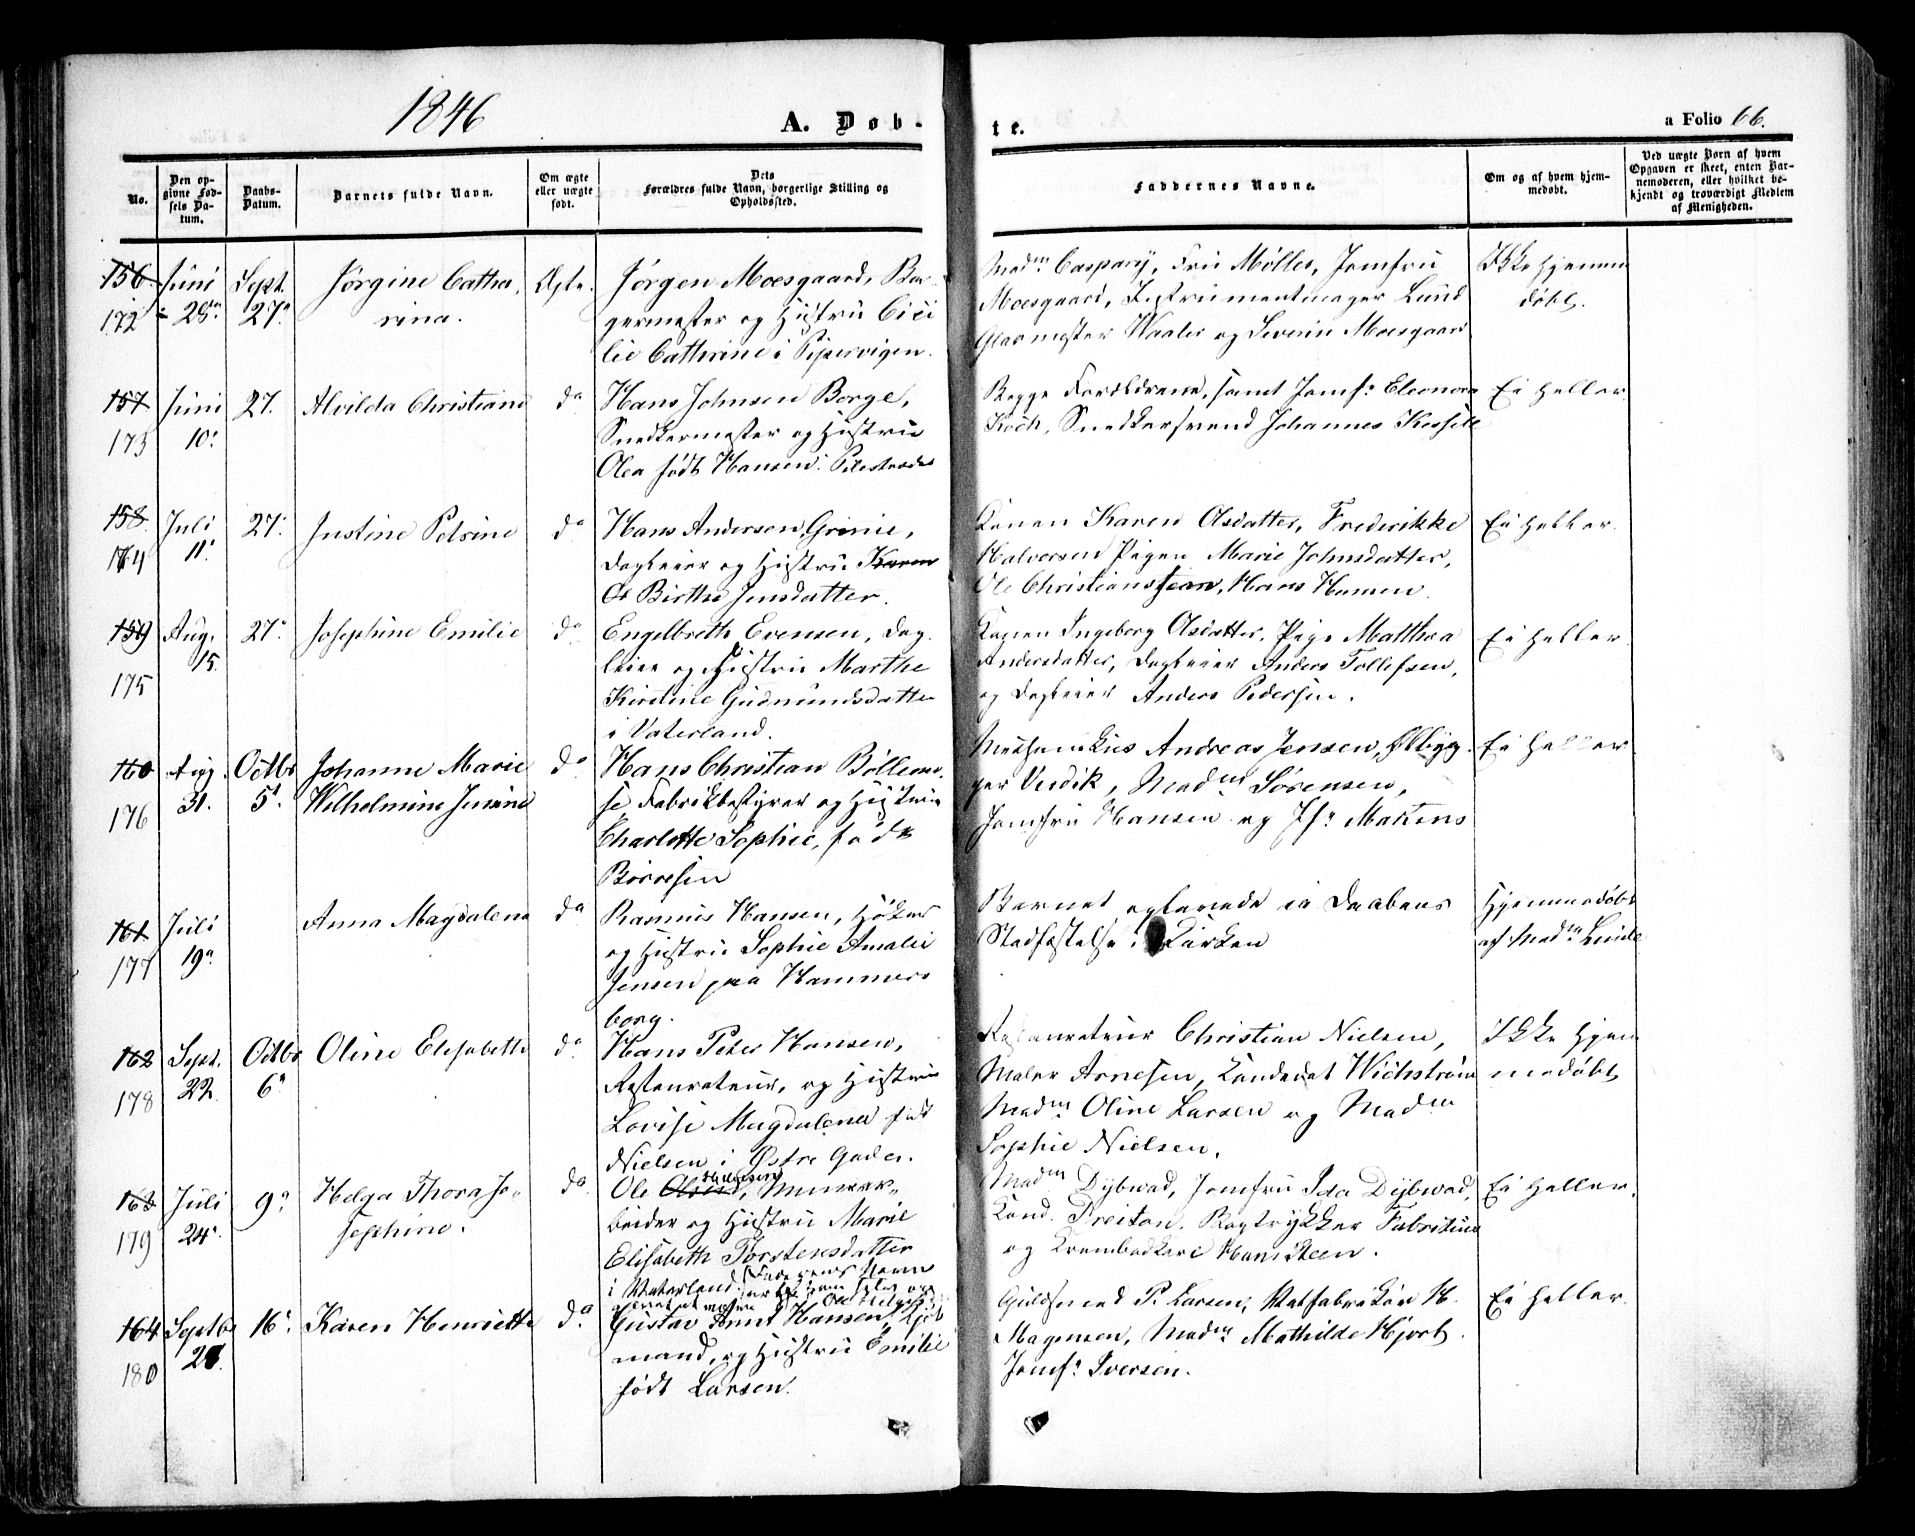 1846
A. Døb-
te.
a Folio 66.
No.
Den op-
givne Fød-
sels Da-
tum.
Daabs-
Datum.
Barnets fulde Navn.
Om ægte
eller uægte
født.
Dets
Forældres fulde Navn, borgerlige Stilling og
Opholdssted.
Faddernes Navne.
Om og af hvem hjem-
medøbt.
Ved uægte Børn af hvem
Opgaven er skeet, enten Bar-
nemoderen, eller hvilket be-
kjendt og troværdigt Medlem
af Menigheden.
156 172
Juni
28de
Sept.
27de
Jørgine Catha-
rina.
Ægte.
Jørgen Moesgaard, Bor-
germester og Hustru Cici
lie Cathrine i Pipervigen.
Madm Caspary, Fru Møller, Jomfru
Moesgaard, Instrumentmager Lund
Glasmester Waaler og Severin Moesgaard
Ikke hjemme
døbt.
157 173
Juni
10de
27.
Alvilda Christiane
do
Hans Johnsen Borge,
Snedkermester og Hustru
Olea født Hansen. Pilestrædet
Begge Forældrene, samt Jomfr. Eleonora
Koch, Snedkersvend Johannes
Ei heller
158 174
Juli
11.
27.
Justine Petrine
do
Hans Andersen Grinie,
Dagleier og Hustru Karen
Ol Birthe Jensdatter.
Konen Karen Olsdatter, Frederikke
Halvorsen Pigen Marie Johnsdatter,
Ole Christiansen, Hans Hansen.
Ei heller.
159 175
Aug.
15.
27.
Josephine Emilie
do
Engelbreth Evensen, Dag-
leier og Hustru Marthe
Kirstine Gudmundsdatter
i Vaterland.
Konen Ingeborg Olsdatter, Pige Matthea
Andersdatter, Dagleier Anders Tollefsen,
og Dagleier Anders Pedersen.
Ei heller.
160 176
Aug.
31.
Octbr
5.
Johanne Marie
Wilhelmine Jensine
do
Hans Christian Böllemo-
se Fabrikbestyrer og Hustru
Charlotte Sophie, født
Börresen
Mechanikus Andreas Jensen, Ølbryg-
ger, Madm Sørensen,
Jomfru Hansen og Jfr. Martens
Ei heller
161 177
Juli
19de
Anna Magdalena
do
Rasmus Hansen, Høker
og Hustru Sophie Amalie
Jensen paa Hammers
borg.
Barnet oplevede ei Daabens
Stadfæstelse i Kirken
Hjemmedøbt
af Madm Lunde
162 178
Sept.
22.
Octbr
6de
Oline Elisabeth
do
Hans Peter Hansen,
Restaurateur, og Hustru
Lovise Magdalena født
Nielsen i Østre Gade.
Restaurateur Christian Nielsen,
Maler Arnesen, Candidat Wichstrøm
Madm Oline Larsen og Madm
Sophie Nielsen.
Ikke hjem
medøbt
163 179
Juli
24.
9de
Helga Thora Jo-
sephine.
do
Ole Olsen, Murar-
beider og Hustru Marie
Elisabeth Torstensdatter
i Vaterland.
Madm Dybwad, Jomfru Ida Dybwad,
Cand. Preitan, Bogtrykker Fabritius
og Krambodkarl Hans Steen.
Ei heller.
164 180
Septbr
28.
16.
Karen Henriette
do
Gustav Hansen, Kjøb
mand, og Hustru Emilie
født Larsen.
Guldsmed P. Larsen, Hatfabrikør H.
Magnusen, Madm Mathilde Hjort.
Jomfr. Iversen.
Ei heller.